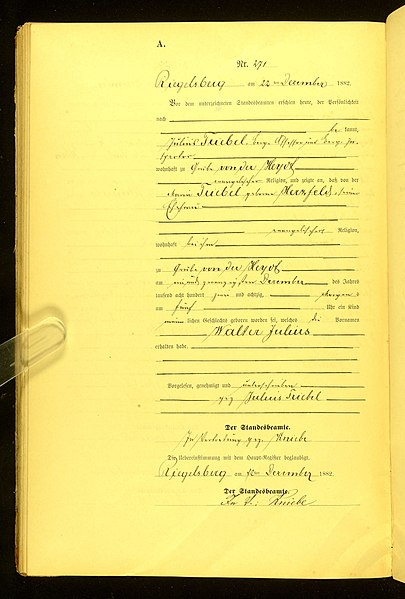 A.
Nr. 291
Riegelsberg am 22ten Dezember 1882.
Vor dem unterzeichneten Standesbeamten erschien heute, der Persönlichkeit
nach
be kannt,
Julius Triebel,
wohnhaft zu Grube von der Heydt
evangelischer Religion, und zeigte an, daß von der
Triebel geborene Herzfeld, seiner
Ehefrau
evangelischer Religion,
wohnhaft bei ihm
zu Grube von der Heydt
am ein und zwanzigsten Dezember des Jahres
tausend acht hundert zwei und achtzig, Morgens
um fünf Uhr ein Kind
männlichen Geschlechts geboren worden sei, welches die Vornamen
Walter Julius
erhalten habe
Vorgelesen, genehmigt und unterschrieben
gez. Julius Triebel
Der Standesbeamte.
In Vertretung gez. Kniebe
Die Uebereinstimmung mit dem Haupt-Register beglaubigt.
Riegelsberg am Dezember 1882.
Der Standesbeamte.
In V. Kniebe